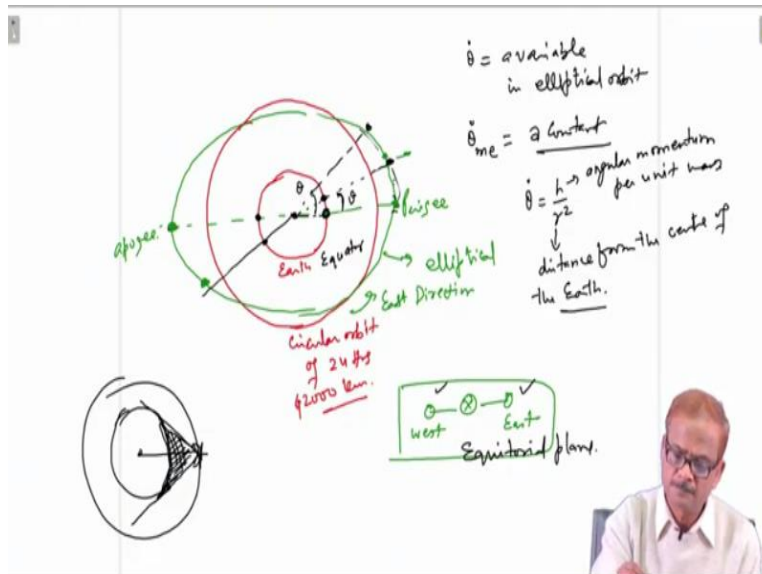 θ̇ = a variable
in elliptical orbit
θ̇me = a constant
θ̇ = h/r² → angular momentum
per unit mass
distance from the centre of
the Earth.
θ
θ̇
apogee
Perigee
Earth Equator
elliptical
East Direction
Circular orbit
of 24 Hrs
42000 km.
West
East
Equitorial plane.